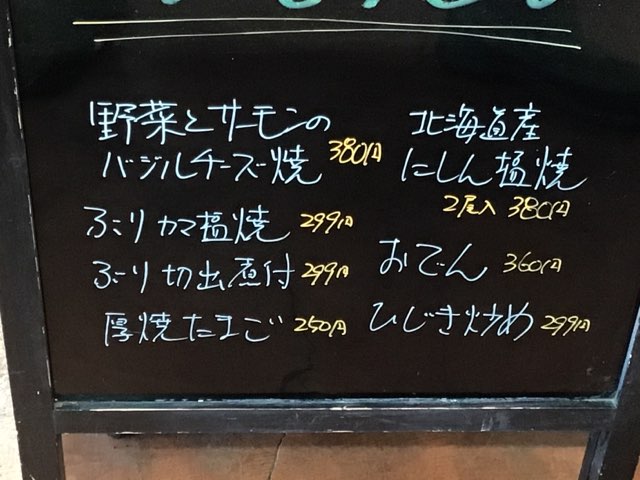 野菜とサーモンの
バジルチーズ焼 380円
ぶりカマ塩焼 299円
ぶり切出煮付 299円
厚焼たまご 250円
北海道産
にしん塩焼
2尾入 380円
おでん 360円
ひじき炒め 299円